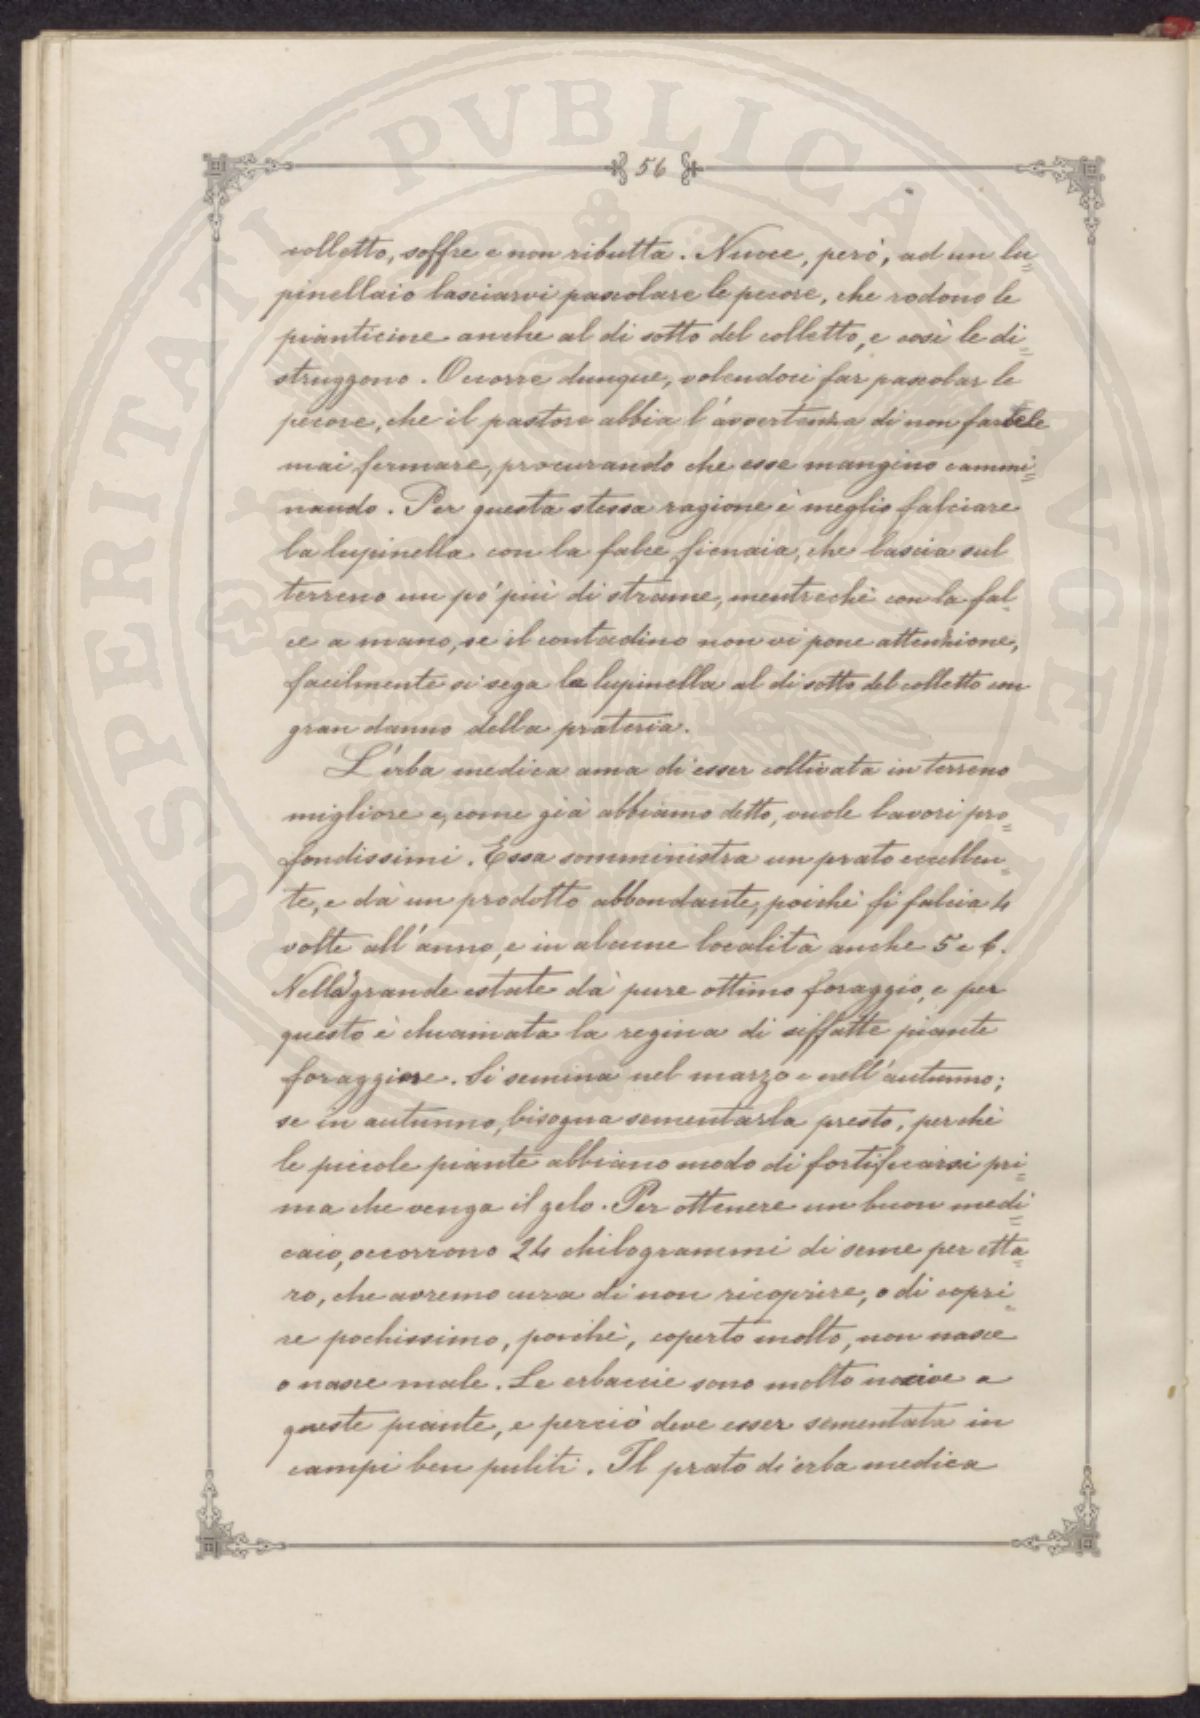 PROSPERITATI PVBLICAE AVGENDAE
56
colletto, soffre e non ributta. Nuoce, però, ad un lu=
pinellaio lasciarvi pascolare le pecore, che rodono le
pianticine anche al di sotto del colletto, e così le di=
struggono. Occorre dunque, volendoci far pascolar le
pecore, che il pastore abbia l'avvertenza di non farcele
mai fermare, procurando che esse mangino cammi=
nando. Per questa stessa ragione è meglio falciare
la lupinella con la falce fienaia, che lascia sul
terreno un pò più di strame, mentrechè con la fal=
ce a mano, se il contadino non vi pone attenzione,
facilmente si sega la lupinella al di sotto del colletto con
gran danno della prateria.
L'erba medica ama di esser coltivata in terreno
migliore e, come già abbiamo detto, vuole lavori pro=
fondissimi. Essa somministra un prato eccellen=
te, e dà un prodotto abbondante, poichè si falcia 4
volte all'anno, e in alcune località anche 5 e 6.
Nella grande estate dà pure ottimo foraggio, e per
questo è chiamata la regina di siffatte piante
foraggiere. Si semina nel marzo e nell'autunno;
se in autunno, bisogna sementarla presto, perchè
le piccole piante abbiano modo di fortificarsi pri=
ma che venga il gelo. Per ottenere un buon medi=
caio, occorrono 24 chilogrammi di seme per etta=
ro, che avremo cura di non ricoprire, o di copri=
re pochissimo, poichè, coperto molto, non nasce
o nasce male. Le erbaccie sono molto nocive a
queste piante, e perciò deve esser sementata in
campi ben puliti. Il prato di erba medica